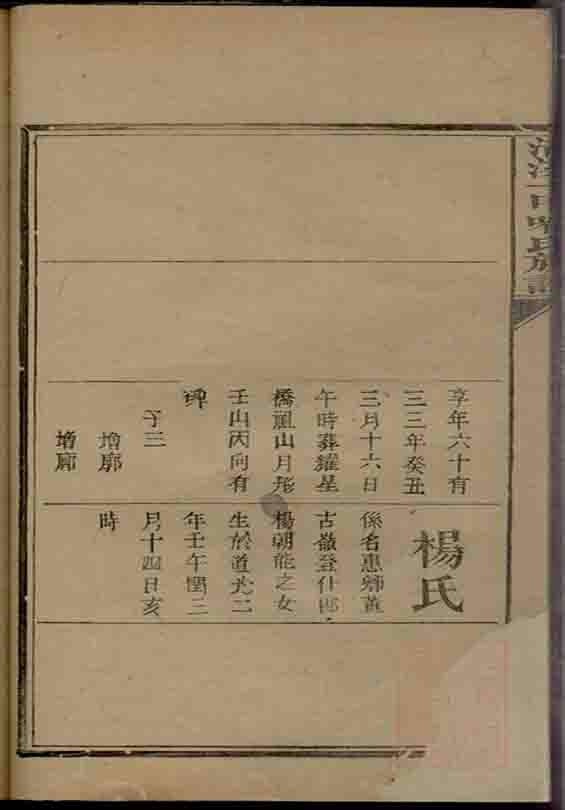 氏族譜
享年六十有
三三年癸丑
三月十六日
午時葬耀星
橋祖山月形
壬山丙向有
碑
子三
增郭
增廓
楊氏
係名惠卿董
古登仕郎
楊朝能之女
生於道光二
年壬午閏三
月十四日亥
時